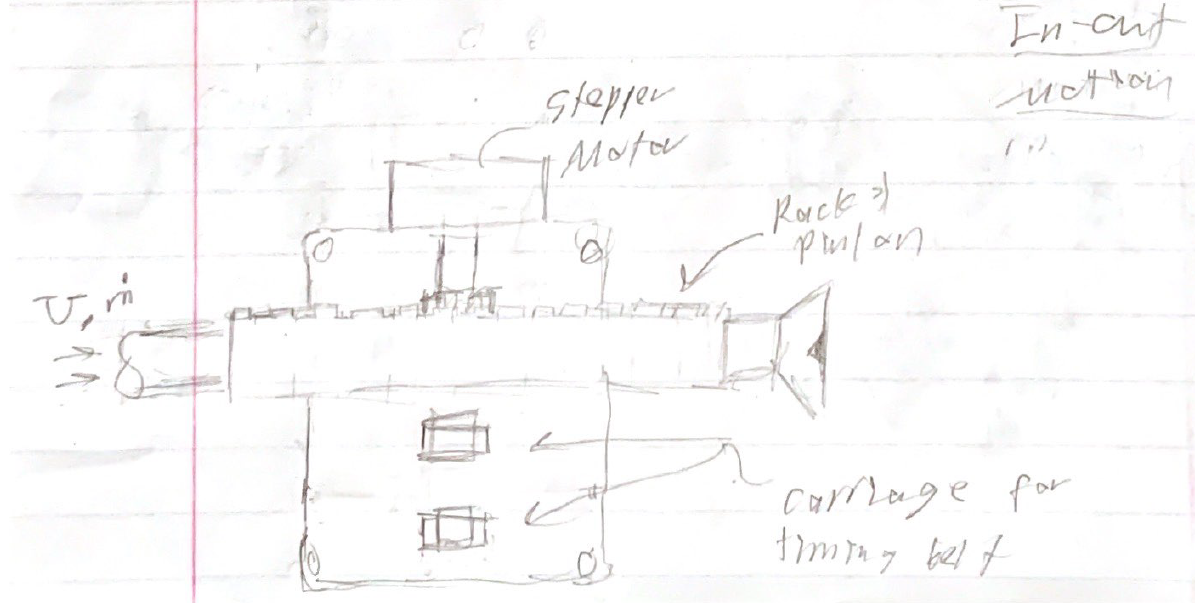 In-out
motion
Stepper
Motor
Rack &
pinion
U, ṁ
carriage for
timing belt